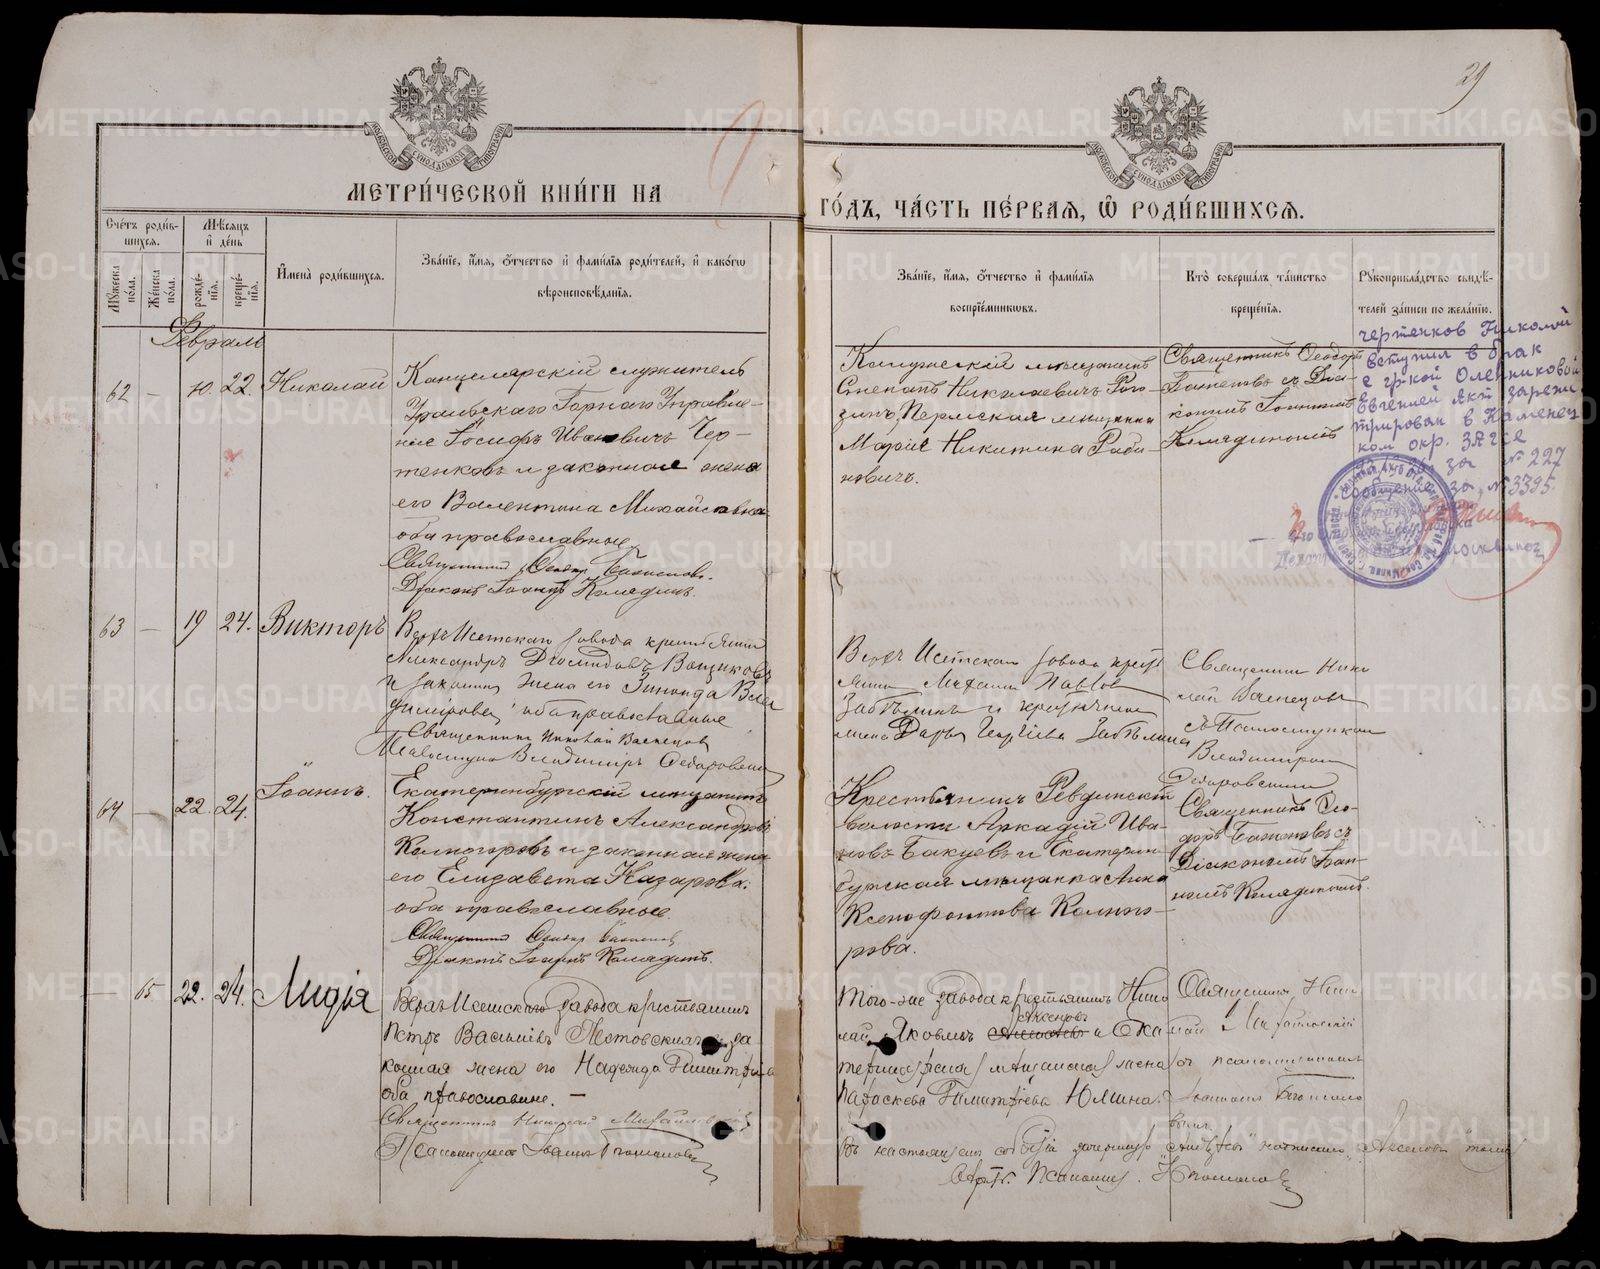 29
МЕТРИ́ЧЕСКОЙ КНИ́ГИ НА
ГО́ДЪ, ЧА́СТЬ ПЕ́РВАЯ, Ѡ РОДИ́ВШИХСЯ.
МОСКОВСКОЙ СѴНОДАЛЬНОЙ ТИПОГРАФІИ
МОСКОВСКОЙ СѴНОДАЛЬНОЙ ТИПОГРАФІИ
Сче́тъ роди́в-
шихся.
Мꙋ́жеска по́ла.
Же́нска по́ла.
Мѣ́сяцъ
и де́нь
рожде́-
нія.
креще́-
нія.
Имена̀ роди́вшихся.
Зва́ніе, и́мя, ѻ́тчество и фами́лія роди́телей, и како́гѡ
вѣроисповѣ́данія.
Зва́ніе, и́мя, ѻ́тчество и фами́лія
воспріе́мникѡвъ.
Кто̀ соверша́лъ та́инство
креще́нія.
Рꙋкоприкла́дство свидѣ́-
телей за́писи по жела́нію.
Февраль
62 — 10. 22. Николай
Канцелярскій служитель
Уральскаго Горнаго Управле-
нія Іосифъ Ивановичъ Чер-
тенковъ и законная жена
его Валентина Михайловна
оба православные
Священникъ Ѳеодоръ Баженовъ.
Діаконъ Іоаннъ Колядинъ.
Калужскій мѣщанинъ
Степанъ Николаевичъ Рого-
зинъ, Пермская мѣщанка
Марія Никитина Раби-
новичъ.
Священникъ Ѳеодоръ
Баженовъ съ Діа-
кономъ Іоанномъ
Колядинымъ
чертенков Николай
вступил в брак
с гр-кой Оленниковой
Евгенией Акт зареги-
трирован в Каменец
ком окр. ЗАГСе
за № 227
Сообщение за № 3395.
63 — 19 24. Викторъ
Верхъ Исетскаго завода крестьянинъ
Александръ Діомидовъ Ващиковъ
и законная жена его Зинаида Влади
мірова, оба православные
Священникъ Николай Васнецовъ
Псаломщикъ Владиміръ Ѳедоровскій
Верхъ Исетскаго завода крест
янинъ Михаилъ Павлов
Забѣлинъ и крестьянская
жена Дарья Георгіева Забѣлина
Священникъ Нико
лай Васнецовъ
съ Псаломщикомъ
Владиміромъ
Ѳедоровскимъ
64 — 22. 24. Іоаннъ.
Екатеринбургскій мѣщанинъ
Константинъ Александровъ
Колногоровъ и законная жена
его Елизавета Назарова.
оба православные.
Священникъ Ѳеодоръ Баженовъ
Діаконъ Іоаннъ Колядинъ.
Крестьянинъ Ревдинской
волости Аркадій Ива-
новъ Бакуевъ и Екатерин-
бургская мѣщанка Анна
Ксенофонтова Колного-
рова.
Священникъ Ѳео-
доръ Баженовъ съ
Діакономъ Іоан-
номъ Колядинымъ.
— 65 22. 24. Лидія
Верхъ-Исетскаго завода крестьянинъ
Петръ Васильевъ и за-
конная жена его Надежда Димитріева
оба православные. —
Священникъ Николай Михайловскій
Псаломщикъ Іоаннъ
Того-же завода крестьянинъ Нико
лай Яковлевъ Аксеновъ и Ека
теринбургская мѣщанская жена
Параскева Димитріева Юлина.
Священникъ Нико
лай Михайловскій
съ псаломщикомъ
Іоанномъ
Въ настоящей подписано „Аксеновъ“